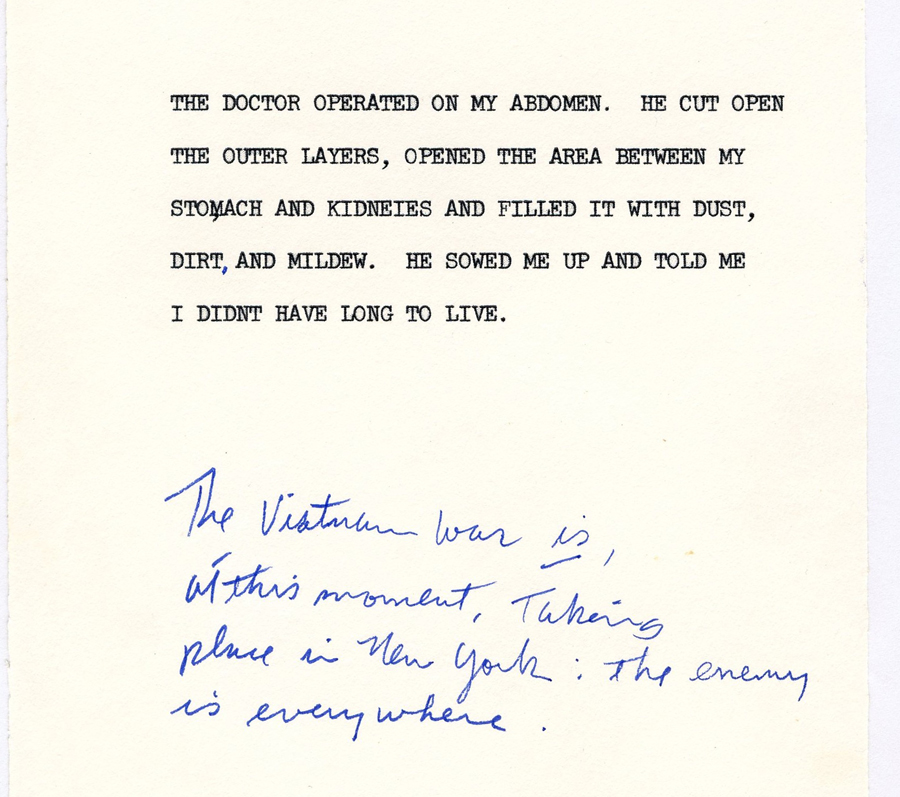 THE DOCTOR OPERATED ON MY ABDOMEN.  HE CUT OPEN
THE OUTER LAYERS, OPENED THE AREA BETWEEN MY
STOMACH AND KIDNEIES AND FILLED IT WITH DUST,
DIRT, AND MILDEW.  HE SOWED ME UP AND TOLD ME
I DIDNT HAVE LONG TO LIVE.
The Vietnam War is,
at this moment, Taking
place in New York : the enemy
is everywhere .